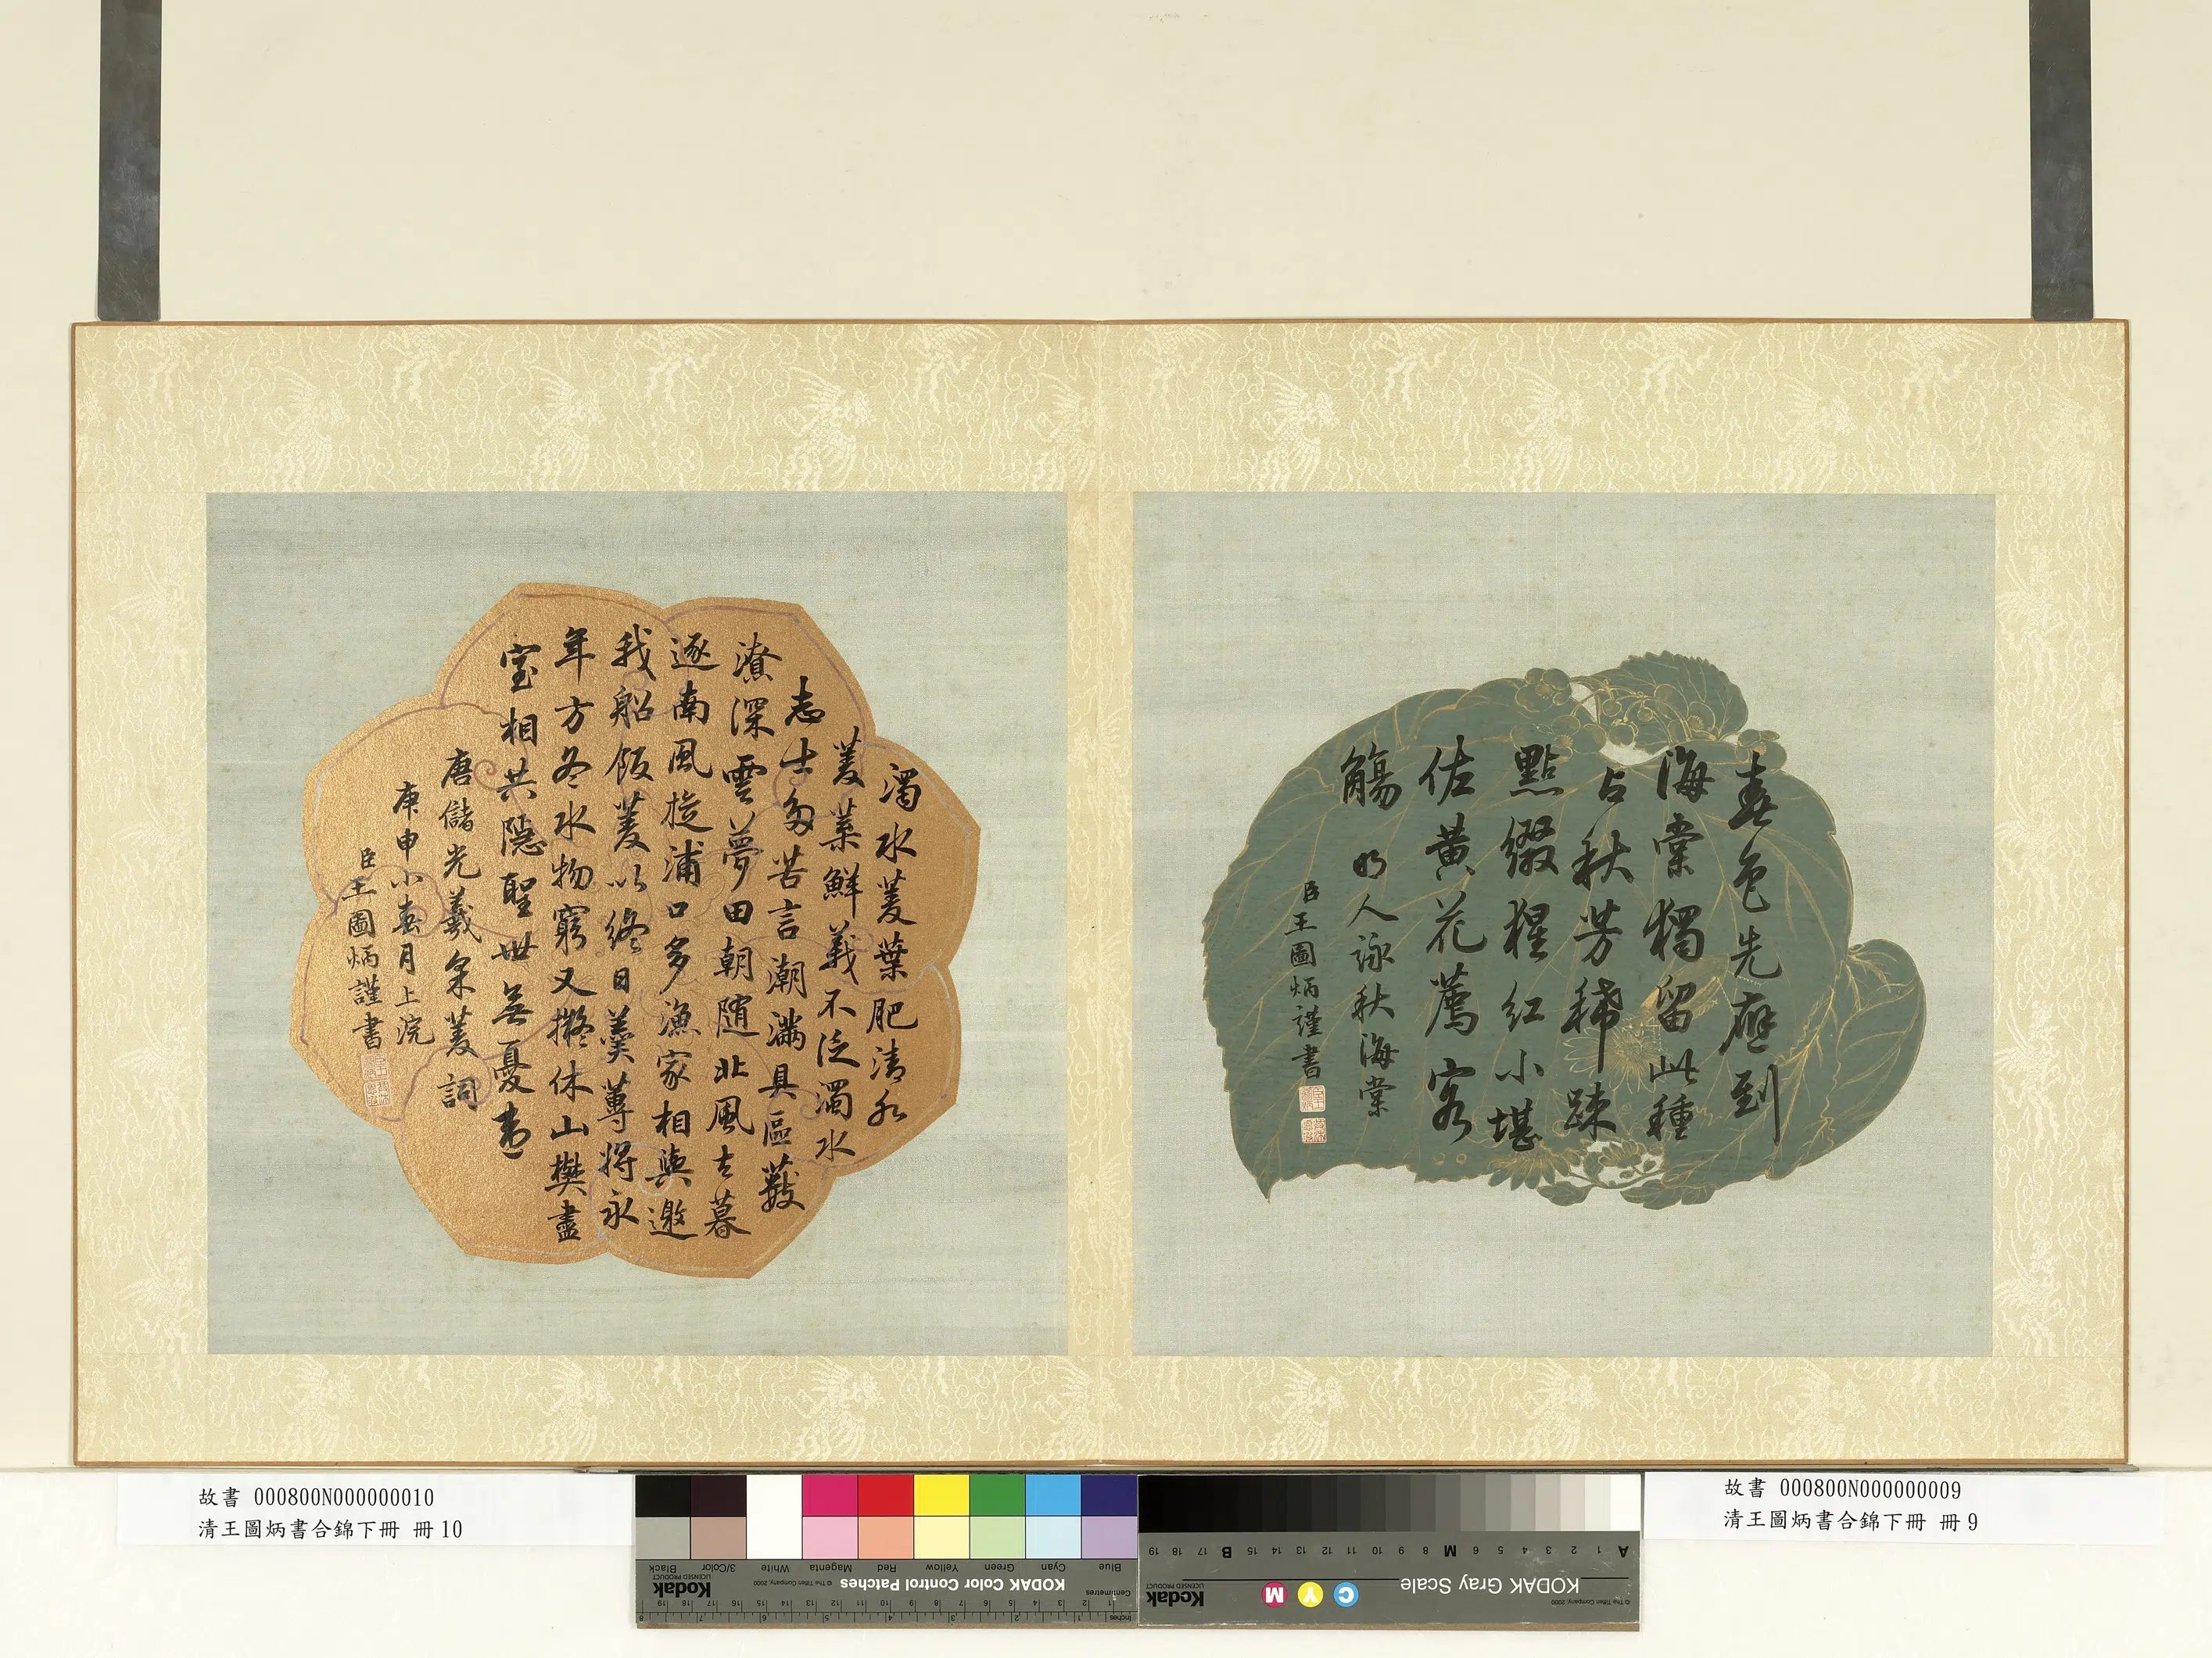 春色先應到
海棠獨留此種
占秋芳稀疎
點綴猩紅小堪
佐黃花薦客
觴 明人詠秋海棠
臣王圖炳謹書
濁水菱葉肥清水
菱葉鮮義不泛濁水
志士多苦言潮滿具區藪
潦深雲夢田朝隨北風去暮
逐南風旋浦口多漁家相與邀
我船飯菱以終日羹蓴將永
年方冬水物窮又擬休山樊盡
室相共隱聖世無憂患
唐儲光羲采菱詞
庚申小春月上浣
臣王圖炳謹書
故書 000800N000000010
清王圖炳書合錦下冊 冊10
故書 000800N000000009
清王圖炳書合錦下冊 冊9
Blue Cyan Green Yellow Red Magenta White 3/Color Black
KODAK Color Control Patches
© The Tiffen Company, 2000
Kodak
LICENSED PRODUCT
Centimetres
Inches
KODAK Gray Scale
C Y M
Kodak
LICENSED PRODUCT
© The Tiffen Company, 2000
A 1 2 3 4 5 6 M 8 9 10 11 12 13 14 15 B 17 18 19